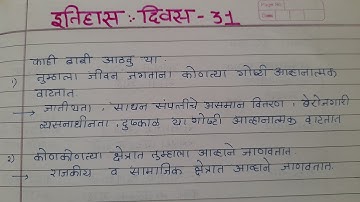 इतिहास :- दिवस - 31
काही बाबी आठवु या.
१) तुम्हाला जीवन जगताना कोणत्या गोष्टी आव्हानात्मक
वाटतात.
→ जातीयता, साधन संपत्तीचे असमान वितरण, बेरोजगारी
व्यसनाधीनता, दुष्काळ या गोष्टी आव्हानात्मक वाटतात
२) कोणकोणत्या क्षेत्रात तुम्हाला आव्हाने जाणवतात.
→ राजकीय व सामाजिक क्षेत्रात आव्हाने जाणवतात.